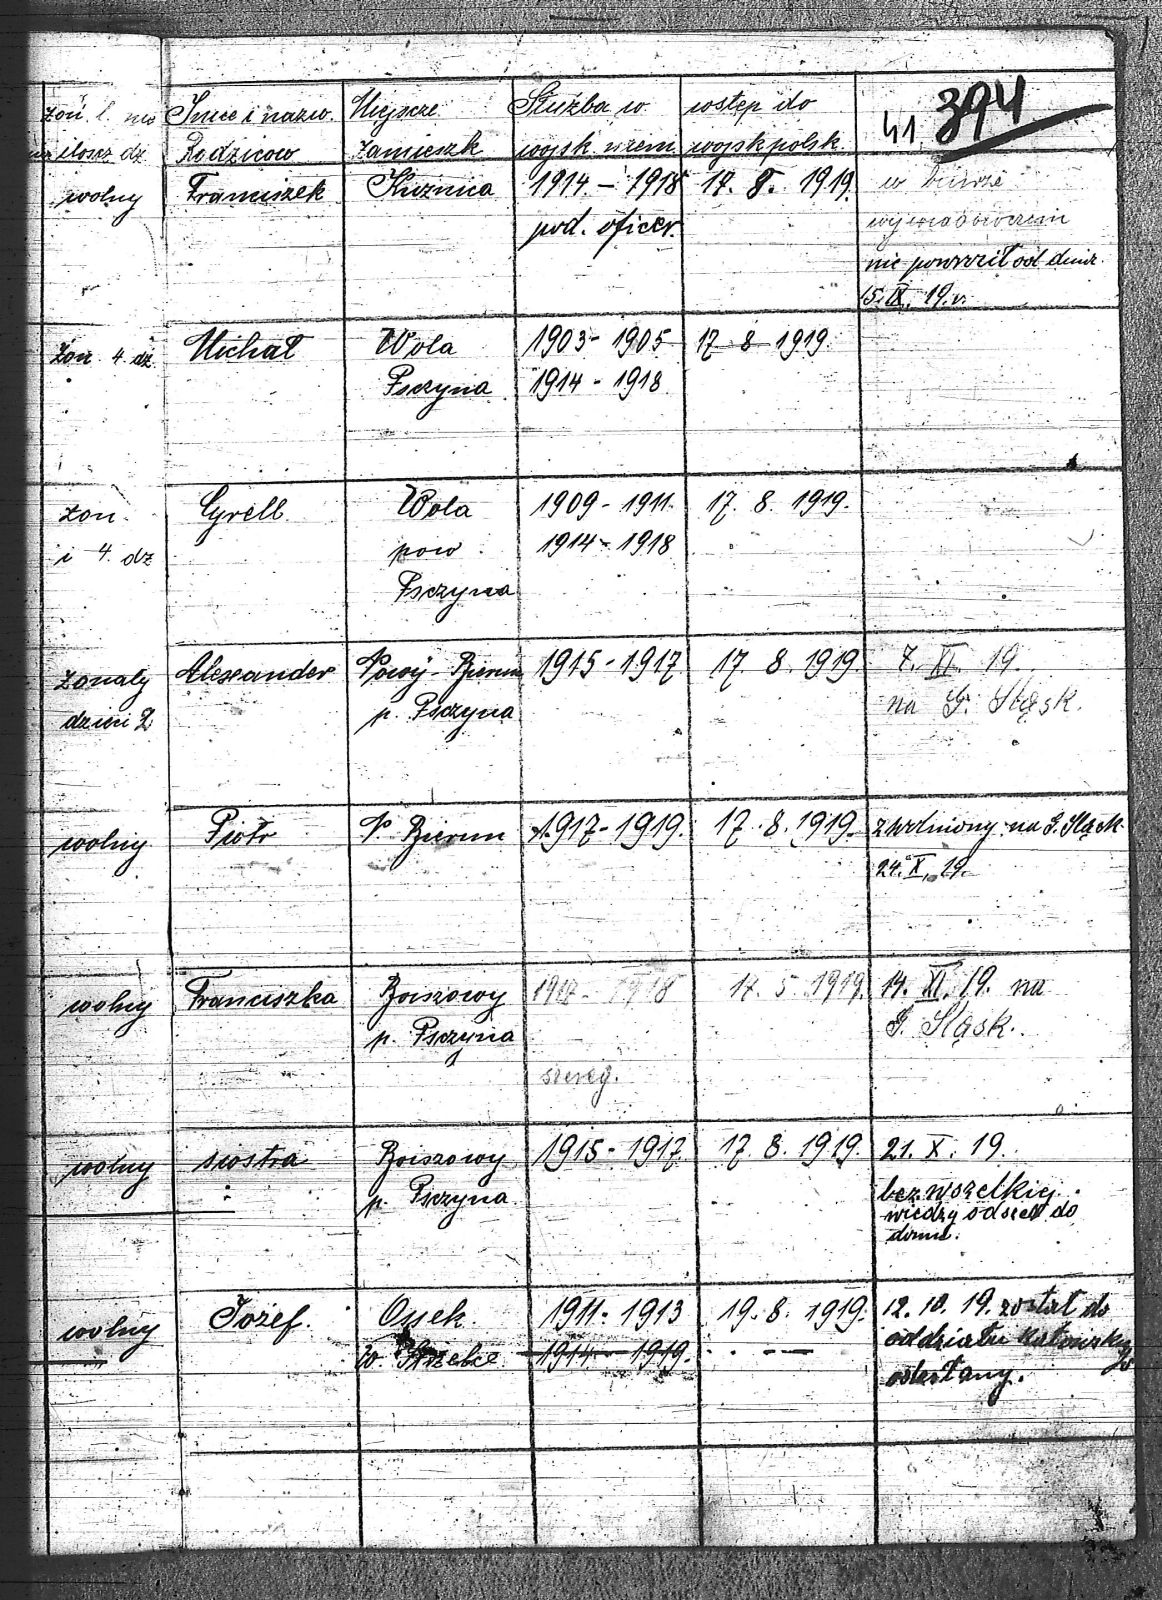 żon. l. nie Imię i nazw. Miejsce Służba w wstęp do 41. 394
ilosc dz. Rodziców zamieszk wojsk. niem. wojsk polsk.
wolny Franciszek Kuźnica 1914 - 1918 17. 8. 1919. w biurze
pod. oficer.
nie powrócił od dnia
15. IX. 19. r.
żon. 4. dz. Michał Wola 1903 - 1905 17 8 1919.
Psczyna 1914 - 1918
żon. Cyrell. Wola 1909 - 1911. 17. 8. 1919.
i 4. dz pow. 1914 - 1918
Psczyna
żonaty Alexander Nowy-Bierun 1915 - 1917 17. 8. 1919 7. XI. 19.
dzieci 2 p. Psczyna na G. Śląsk.
wolny Piotr N Bierun 1917 - 1919. 17. 8. 1919. zwolniony na G. Śląsk
24. X. 19.
wolny Franciszka Boiszowy 1917 - 1918 17. 5. 1919. 14. XI. 19. na
p. Psczyna G. Śląsk.
szereg.
wolny siostra Boiszowy 1915 - 1917 17. 8. 1919. 21. X. 19.
p. Psczyna bez wszelkiej
wiedzy odszed do
domu.
wolny Józef. Ossek 1911 - 1913 19. 8. 1919. 12. 10. 19. został do
w. Strzelce 1914 - 1919. oddziału
odesłany.